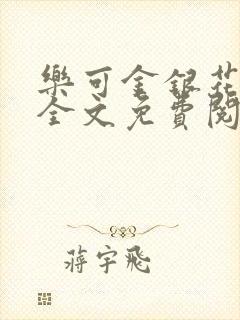 樂可金銀花
全文免費閱
蔣宇飛